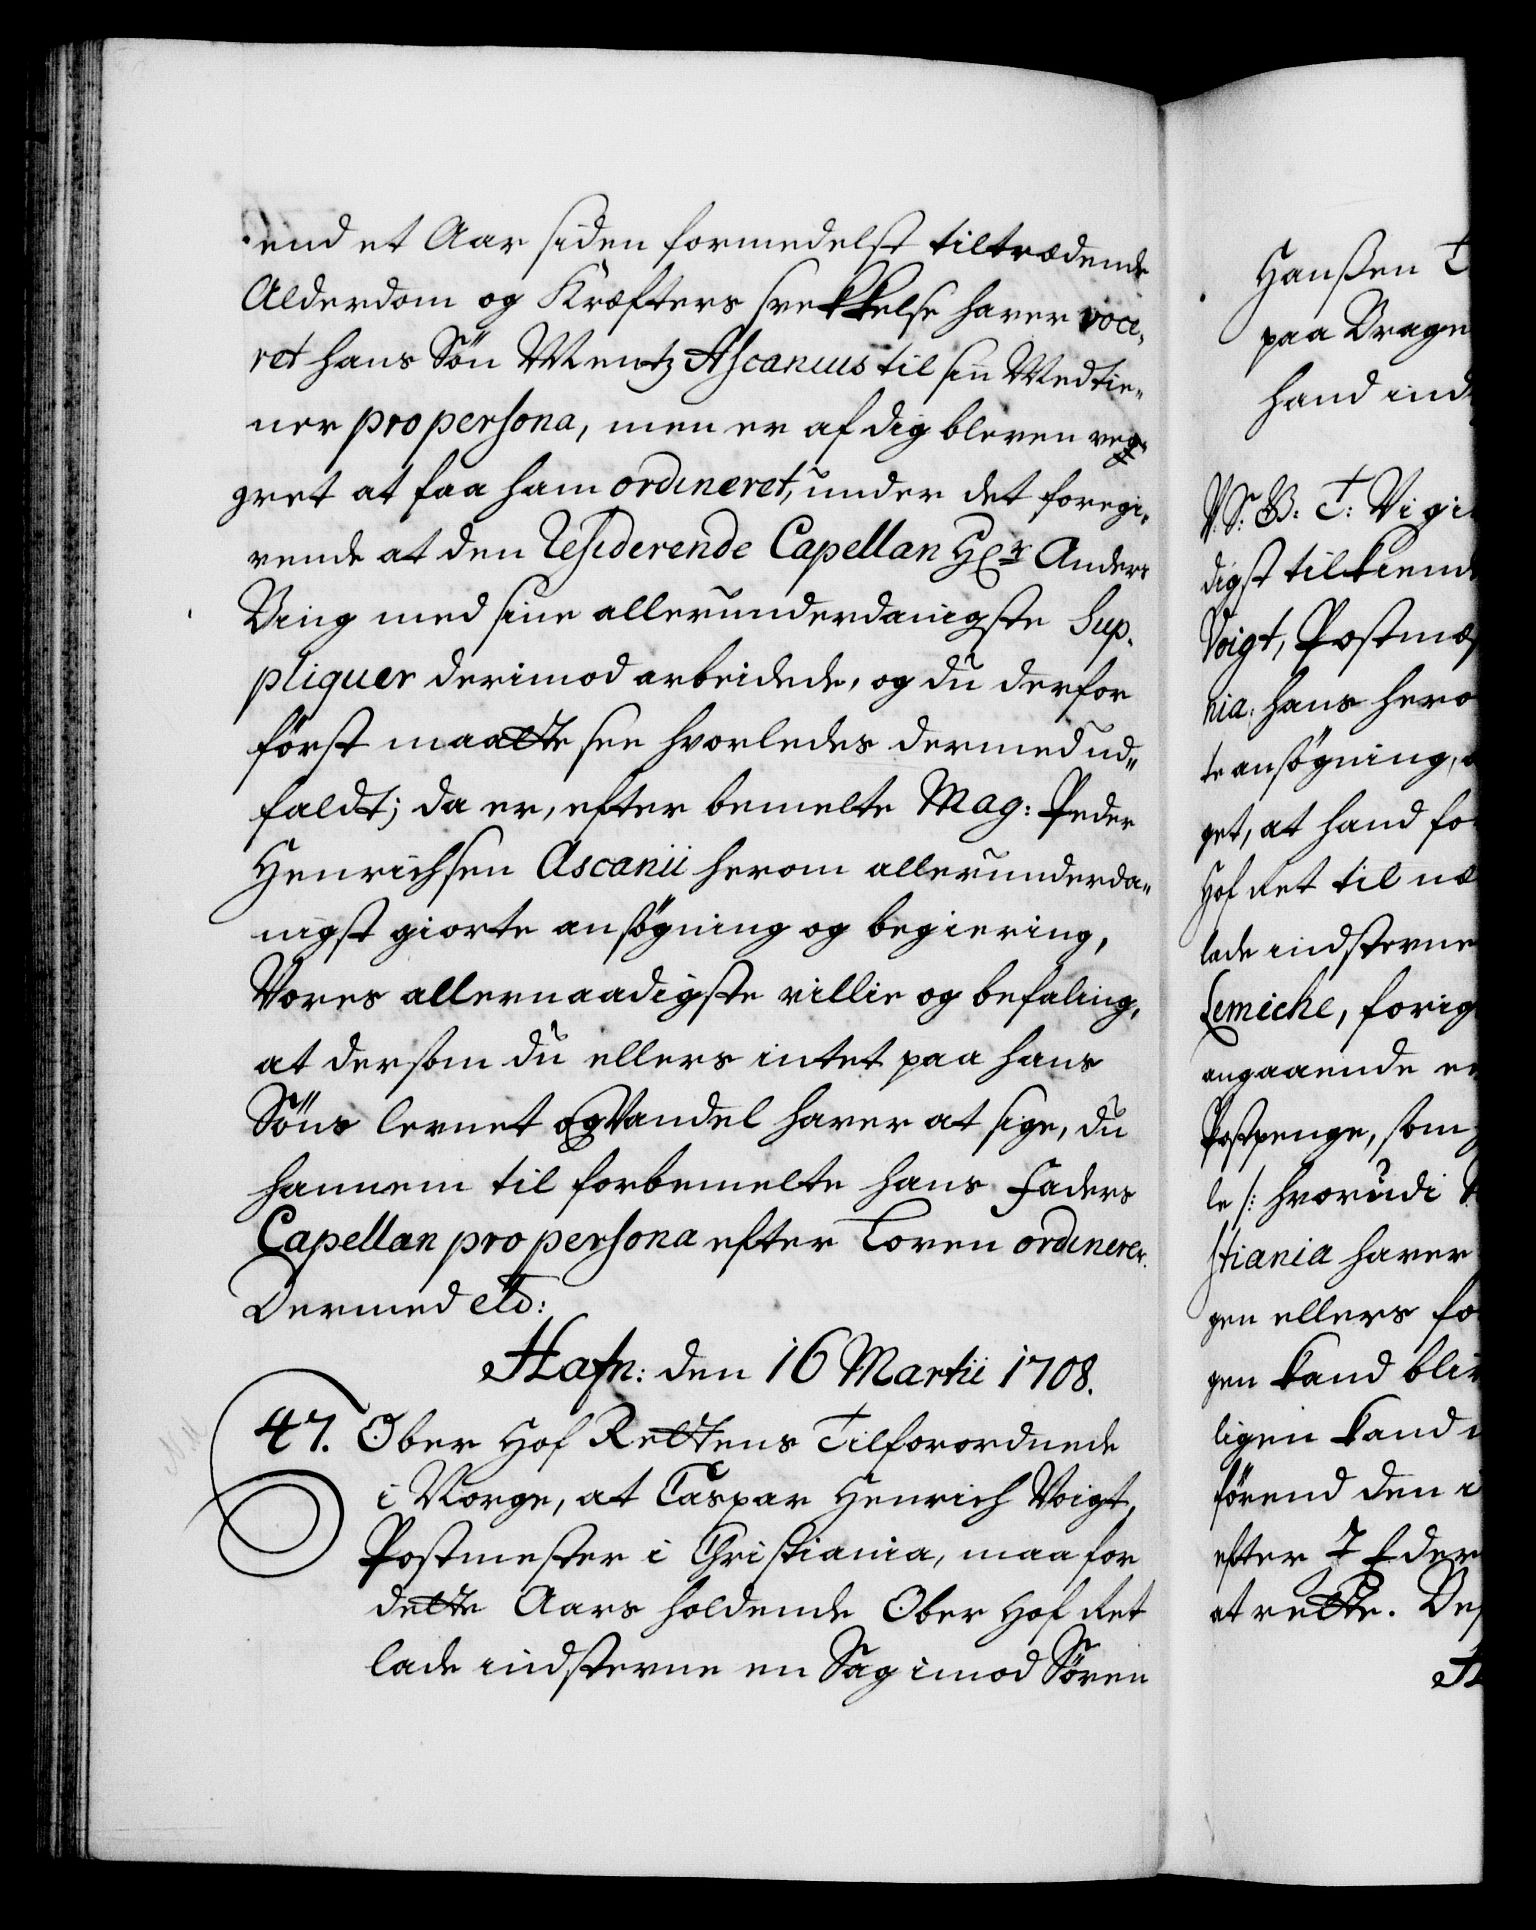 end et Aar siden formedelst tiltrædende
Alderdom og Kræfters svekkelse haver voce,
ret hans Søn Mentz Ascanius til sin Medtie„
ner pro persona, men er af dig bleven veg„
gret at faa ham ordineret, under det foregi„
vende at den Residerende Capellan Hr Anders
Ving med sine allerunderdanigste Sup„
pliquer derimod arbeidede, og du derfor
først maatte see hvorledes dermed ud„
faldt; da er, efter bemelte Mag: Peder
Henrichsen Ascanii herom allerunderda„
nigst giorte ansøgning og begiering,
Vores allernaadigste villie og befaling,
at dersom du ellers intet paa hans
Søns levnet og Vandel haver at sige, du
hannem til forbemelte hans Faders
Capellan pro persona efter Loven ordinerer.
Dermed etc:
Hafn: den 16 Martii 1708.
47. Ober Hof Rettens Tilforordnede
i Norge, at Caspar Henrich Voigt,
Postmester i Christiania, maa for
dette Aars holdende Ober Hof Ret
lade indstevne en Sag imod Søren
Hanssen
paa Brage
hand ind
V. S: G: T: Vi gi
digst tilkiend
Voigt, Postmes
nia, hans hero
te ansøgning,
get, at hand fo
Hof Ret til næ
lade indstevne
Lemiche, forig
angaaende en
Postpenge, som
le /: hvorudi
stiania haver
gen ellers fo
gen kand bliv
ligen kand
førend den i
efter 7 Eder
at rette. Des